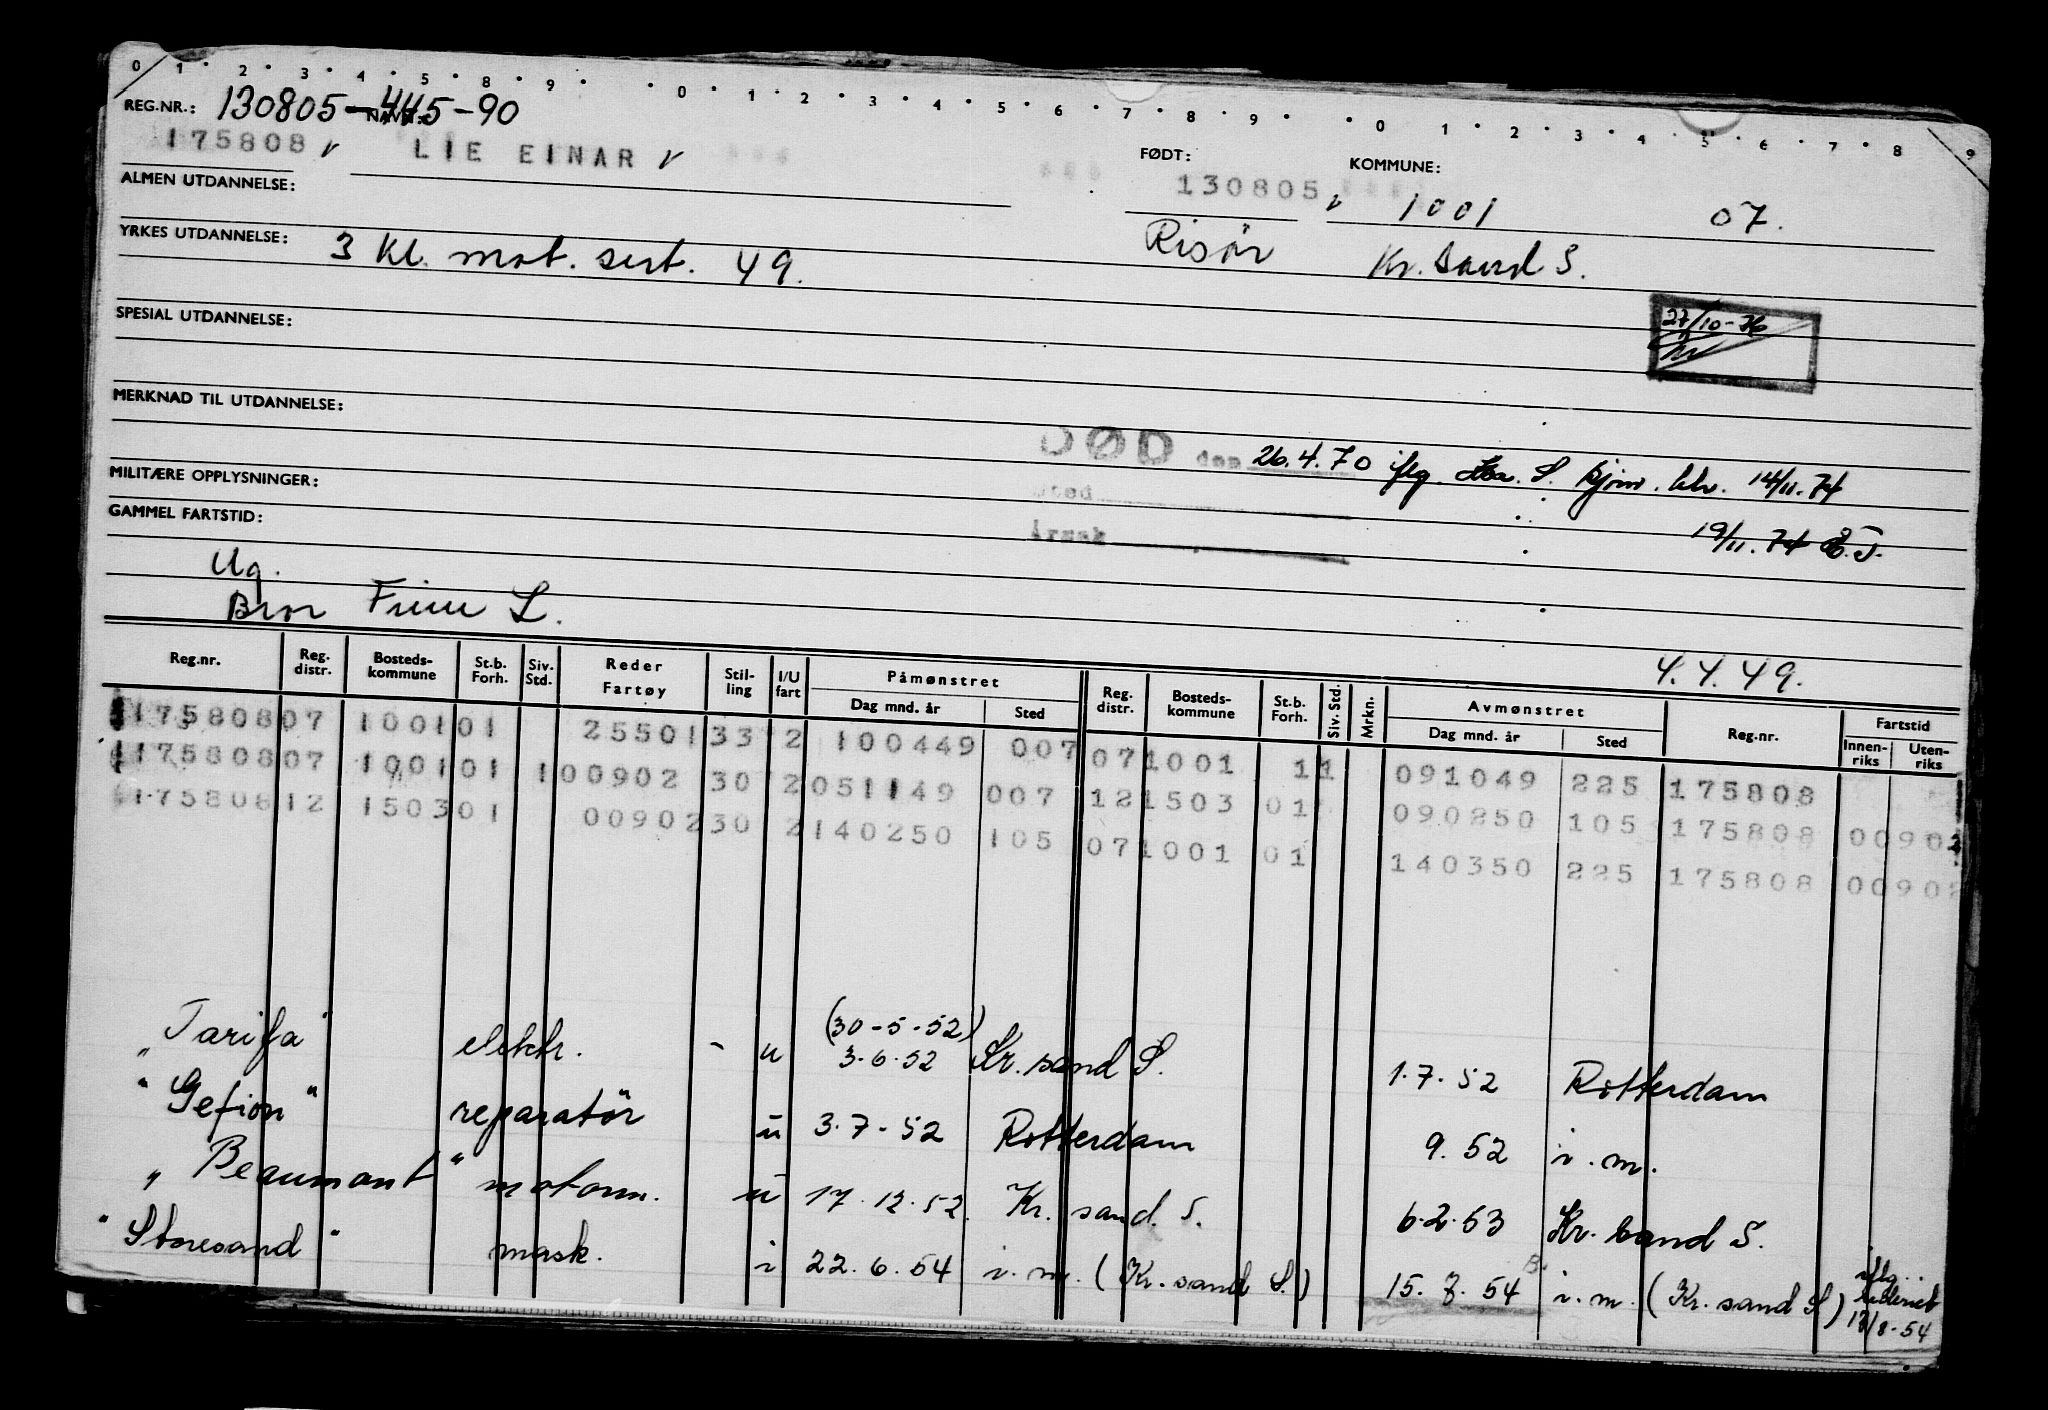 0 1 2 3 4 5 8 9 0 1 2 3 4 5 6 7 8 9 0 1 2 3 4 5 6 7 8 9
REG.NR.: 130805-445-90
175808 LIE EINAR FØDT: 130805 KOMMUNE: 1001 07.
ALMEN UTDANNELSE:
Risör Kr. sand S.
YRKES UTDANNELSE: 3 Kl. mot. sert. 49.
27/10-76
SPESIAL UTDANNELSE:
MERKNAD TIL UTDANNELSE:
DØD den 26.4.70 iflg. S. 14/11.74
Sted
MILITÆRE OPPLYSNINGER:
Årsak
19/11.74
GAMMEL FARTSTID:
Ug.
Bror Finn L.
4.4.49.
Reg.nr. Reg. distr. Bosteds-kommune St.b. Forh. Siv. Std. Reder Fartøy Stil-ling I/U fart Påmønstret Dag mnd. år Sted Reg. distr. Bosteds-kommune St.b. Forh. Siv. Std. Mrkn. Avmønstret Dag mnd. år Sted Reg.nr. Fartstid Innen-riks Uten-riks
175808 07 1001 01 25501 33 2 100449 007 07 1001 1 1 091049 225 175808
175808 07 1001 01 100902 30 2 051149 007 12 1503 01 090250 105 175808 00902
175808 12 1503 01 00902 30 2 140250 105 07 1001 01 140350 225 175808 00902
"Tarifa" elektr. - u (30-5-52) 3.6.52 Kr. sand S. 1.7.52 Rotterdam
"Gefion" reparatör u 3.7-52 Rotterdam 9.52 i.m.
"Beaumont" motorm. u 17.12.52. Kr. sand. S. 6.2.53 Kr. sand S.
"Storesand" mask. i 22.6.54 i.m. (Kr. sand S.) 15.7.54 i.m. (Kr. sand S) iflg. rederiet 12/8-54